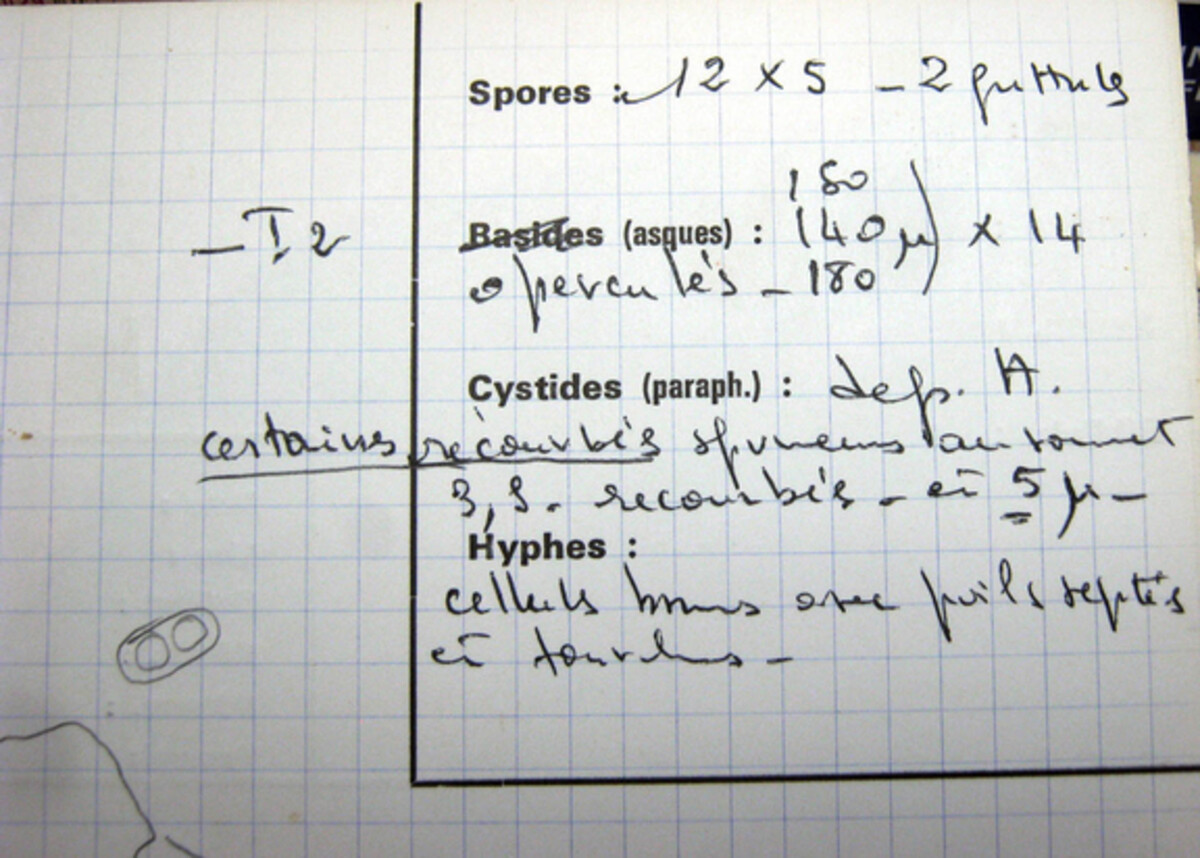 Spores : 12 x 5 - 2 guttules
180
Basides (asques) : 140 µ x 14
- I 2
operculés - 180
Cystides (paraph.) : H.
certains recourbés au sommet
3, recourbés - et 5 µ -
Hyphes :
cellules brunes avec poils septés
et fourchus -